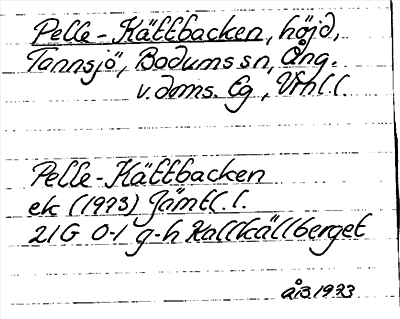 Pelle-Kättbacken, höjd,
Tannsjö, Bodums sn, Ång.
v. doms. Eg, Vrnl. l.
Pelle-Kättbacken
ek (1973) Jämtl. l.
21G 0-1 g-h Kallkällberget
ÅB 1973